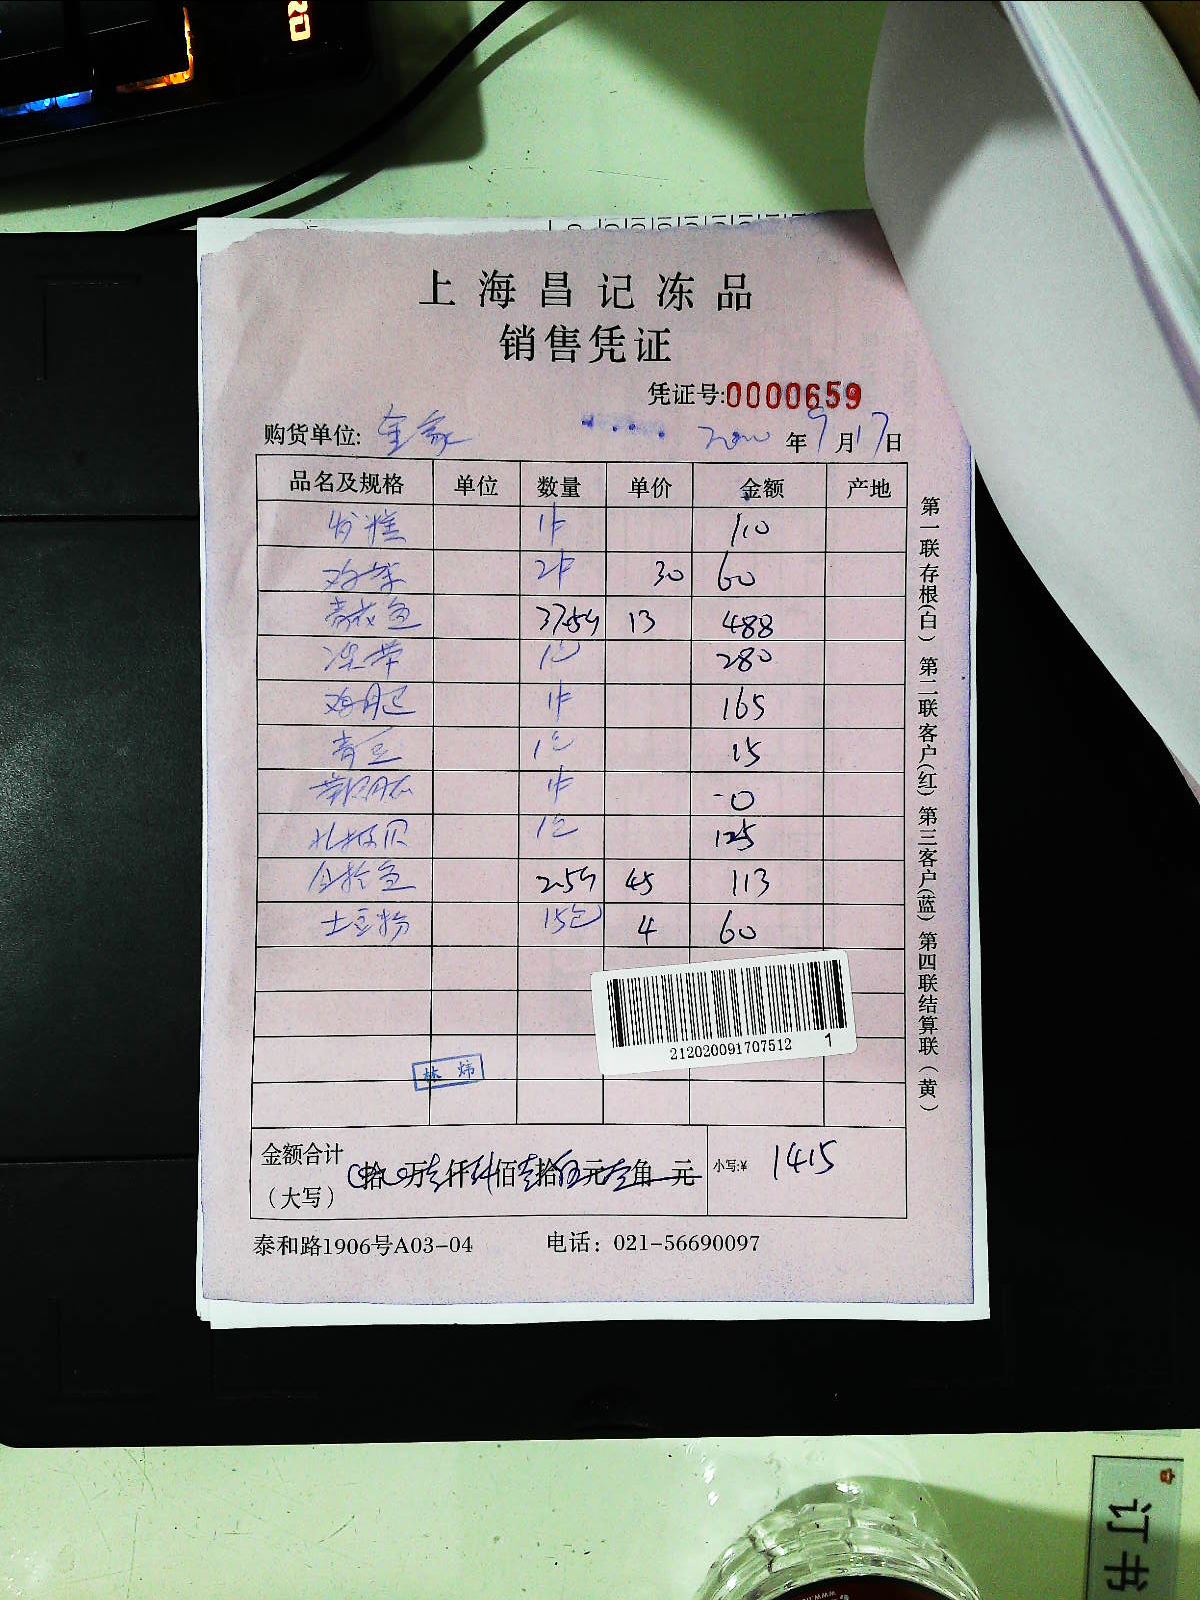 上海昌记冻品
销售凭证
凭证号:0000659
购货单位: 年9月17日
品名及规格 单位 数量 单价 金额 产地
发糕 1件 110
鸡架 2件 30 60
37.5斤 13 488
280
鸡腿 1件 165
青豆 1包 15
1件
扎板贝 1包 125
2.5斤 45 113
土豆粉 15包 4 60
212020091707512 1
林炜
金额合计
(大写) 拾 万壹仟肆佰壹拾伍元 角 元 小写:¥ 1415
泰和路1906号A03-04 电话：021-56690097
第一联存根(白) 第二联客户(红) 第三客户(蓝) 第四联结算联(黄)
订书